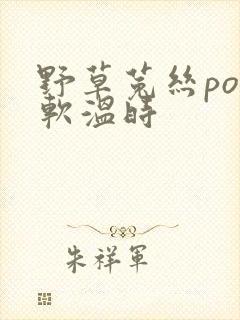 野草菟丝po
軟温時
朱祥軍